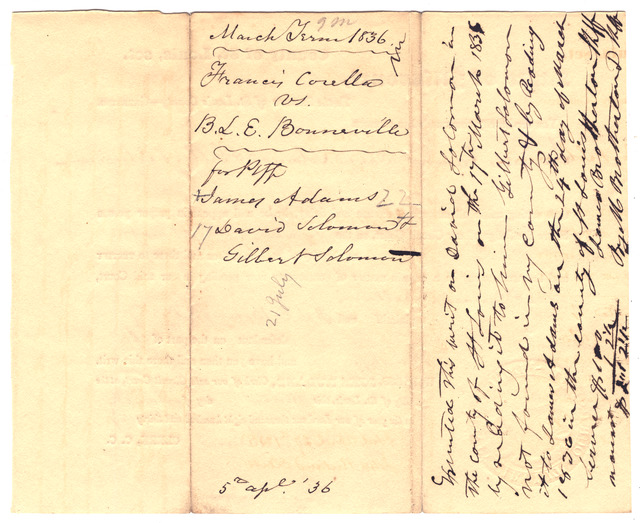 March Term 1836
Francis Corella
vs.
B. L. E. Bonneville
for Plff
James Adams
17 David Solomon
Gilbert Solomon
21 July
5th apl. '36
Executed this writ on David Solomon in
the county of St Louis on the 17th March 1836
by reading it to him Gilbert Solomon
not found in my county & by reading
it to James Adams on the 24th day of March
1836 in the county of St Louis
James Brotherton Shff
By M Brotherton D Shff
Service $1.00